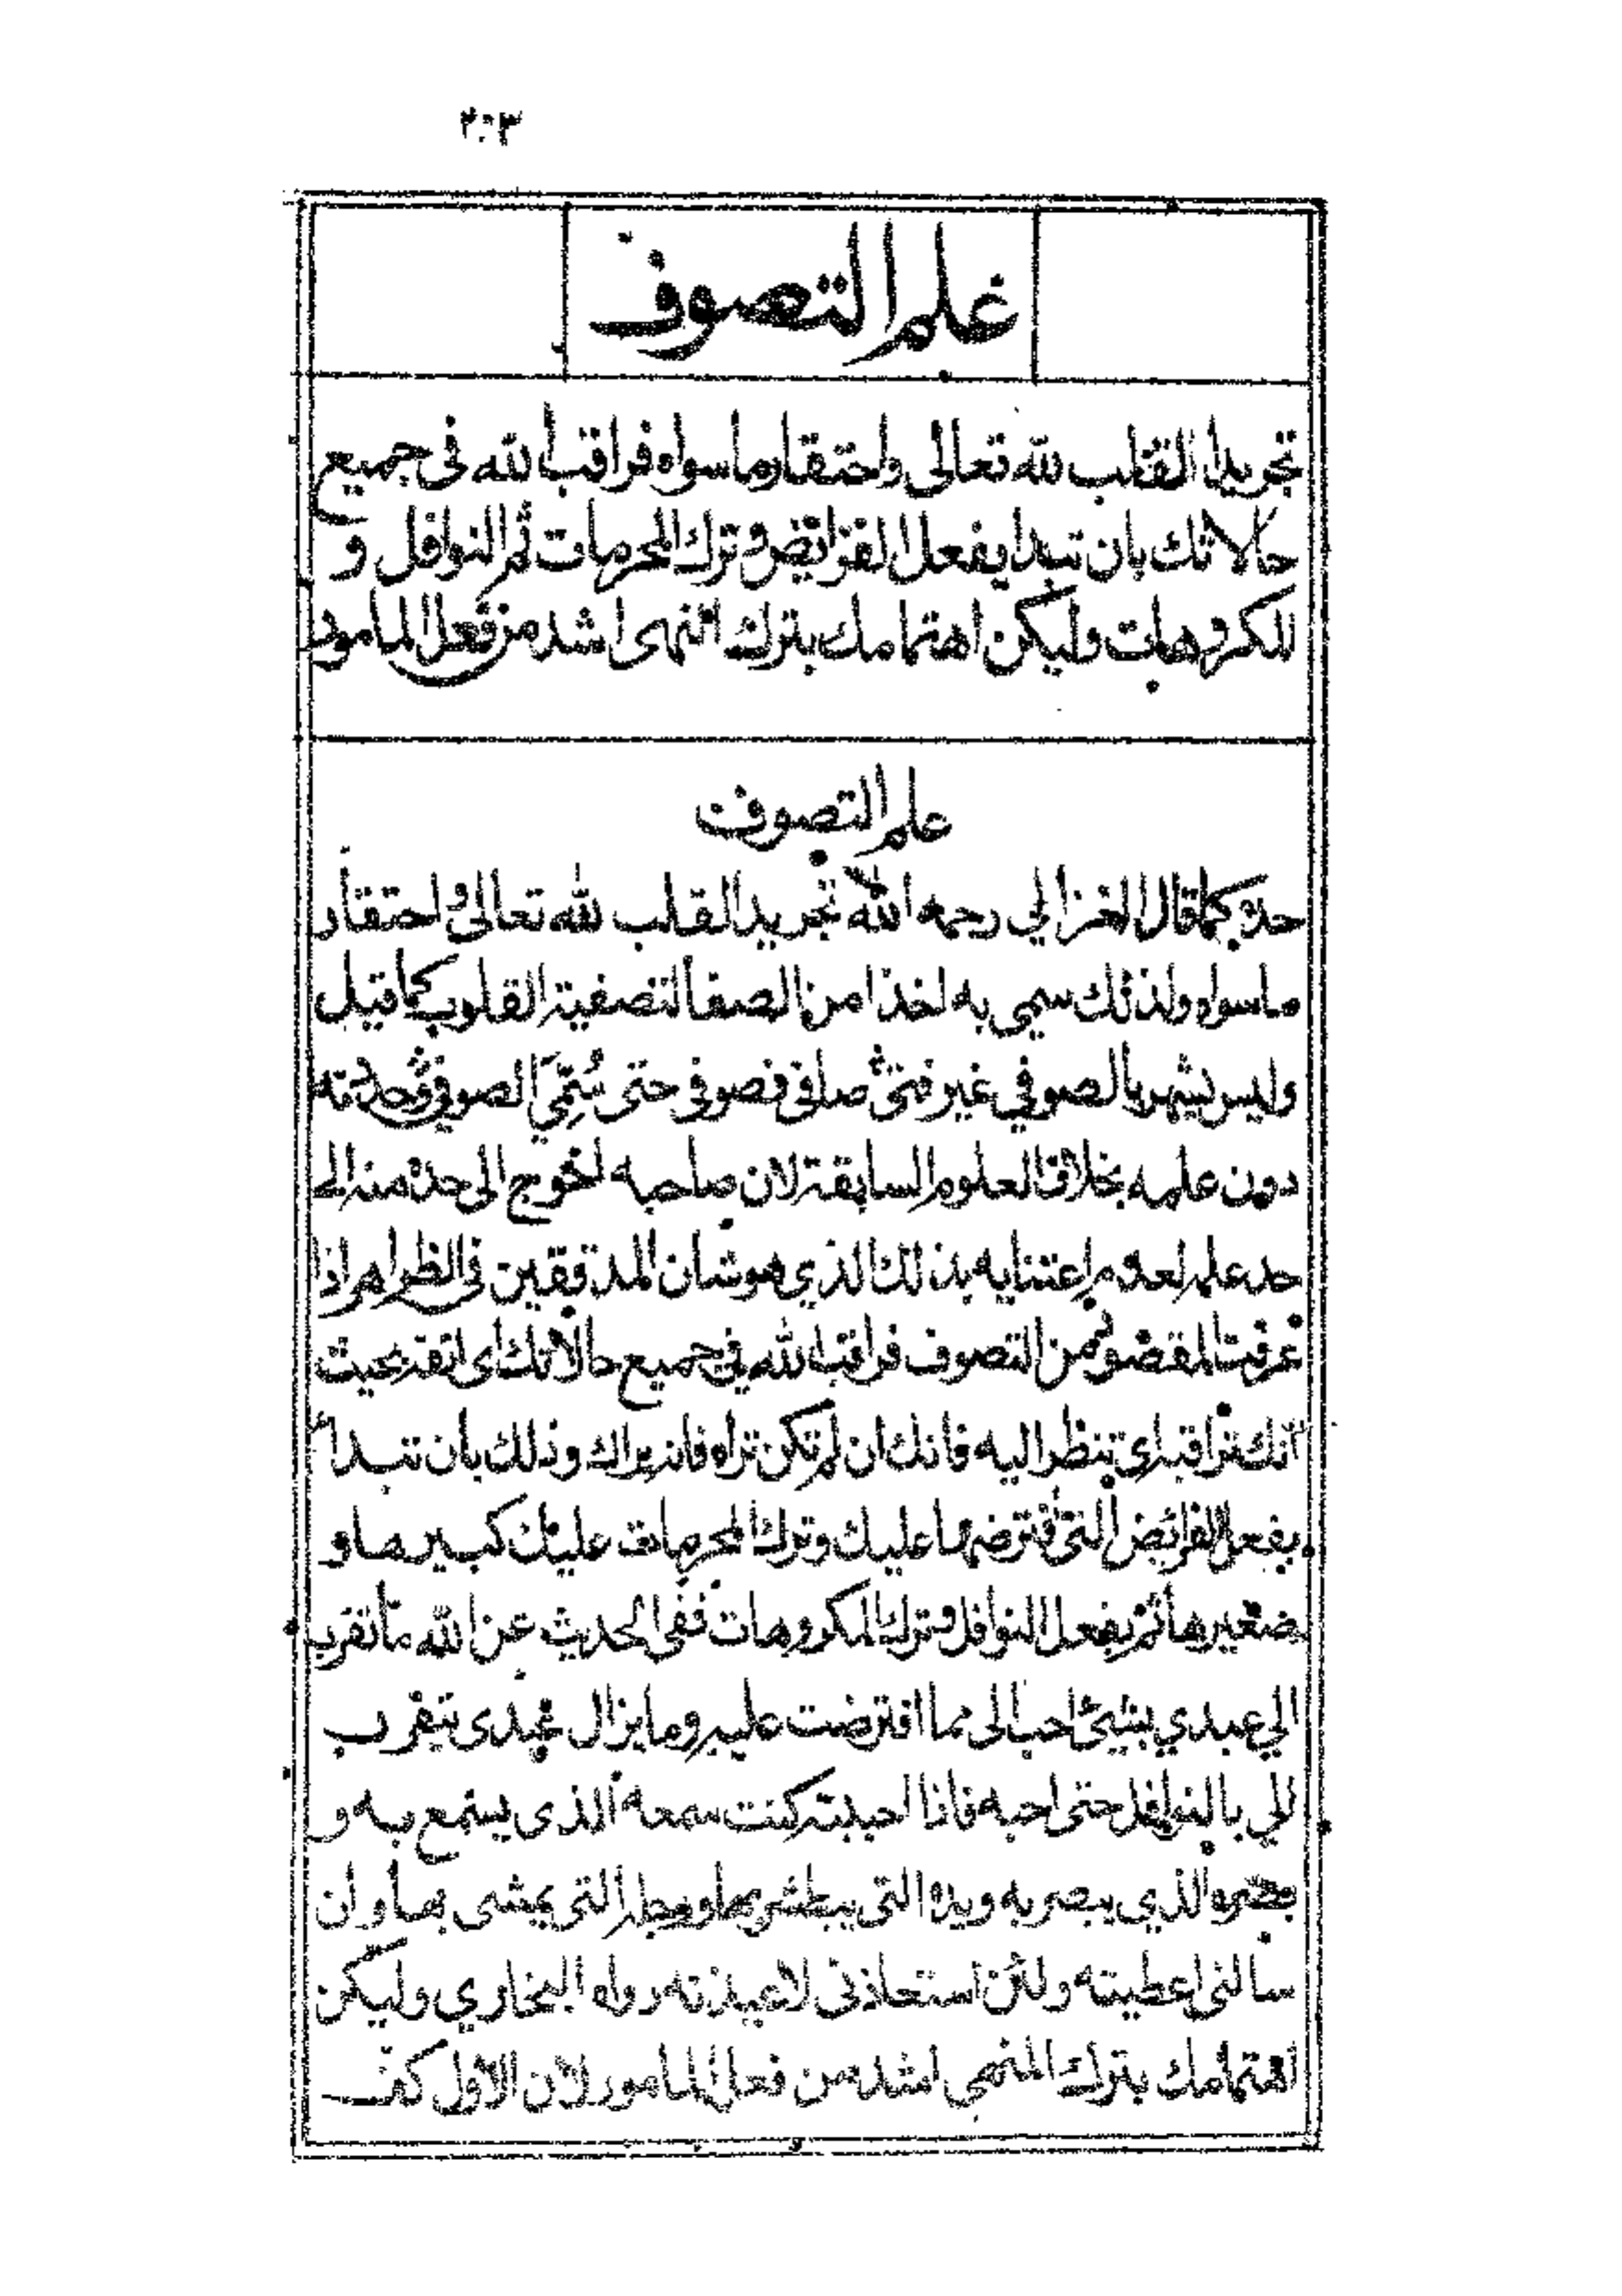 ٢٠٣
علم التصوف
تجريد القلب لله تعالى واحتقار ما سواه فراقب الله فى جميع
حالاتك بان تبدا بفعل الفرائض وترك المحرمات ثم النوافل و
المكروهات وليكن اهتمامك بترك النهى اشد من فعل المامور
علم التصوف
حده كما قال الغزالي رحمه الله تجريد القلب لله تعالى واحتقار
ما سواه ولذلك سمي به اخذا من الصفا لتصفية القلوب كما قيل
وليس يشهر بالصوفي غير فتى صافى فصوفى حتى سُمّيَ الصوفي وحدته
دون علمه بخلاف العلوم السابقة لان صاحبه احوج الى حده منه الى
حد علمه لعدم اعتنايه بذلك الذي هو شان المدققين في الظواهر اذا
عرفت المقصود من التصوف فراقب الله في جميع حالاتك اى اتقه بحيث
انك تراقبه اي تنظر اليه فانك ان لم تكن تراه فانه يراك وذلك بان تبدا
بفعل الفرائض التي افترضها عليك وترك المحرمات عليك كبيرها و
صغيرها ثم بفعل النوافل وترك المكروهات ففى الحديث عن الله ما تقرب
الي عبدي بشيئ احب الى مما افترضت عليه وما يزال عبدى يتقرب
الي بالنوافل حتى احبه فاذا احببته كنت سمعه الذى يسمع به و
بصره الذي يبصر به ويده التى يبطش بها ورجله التى يمشى بها وان
سالنى اعطيته ولئن استعاذنى لاعيذنه رواه البخاري وليكن
اهتمامك بترك المنهي اشد من فعل المامور لان الاول كف